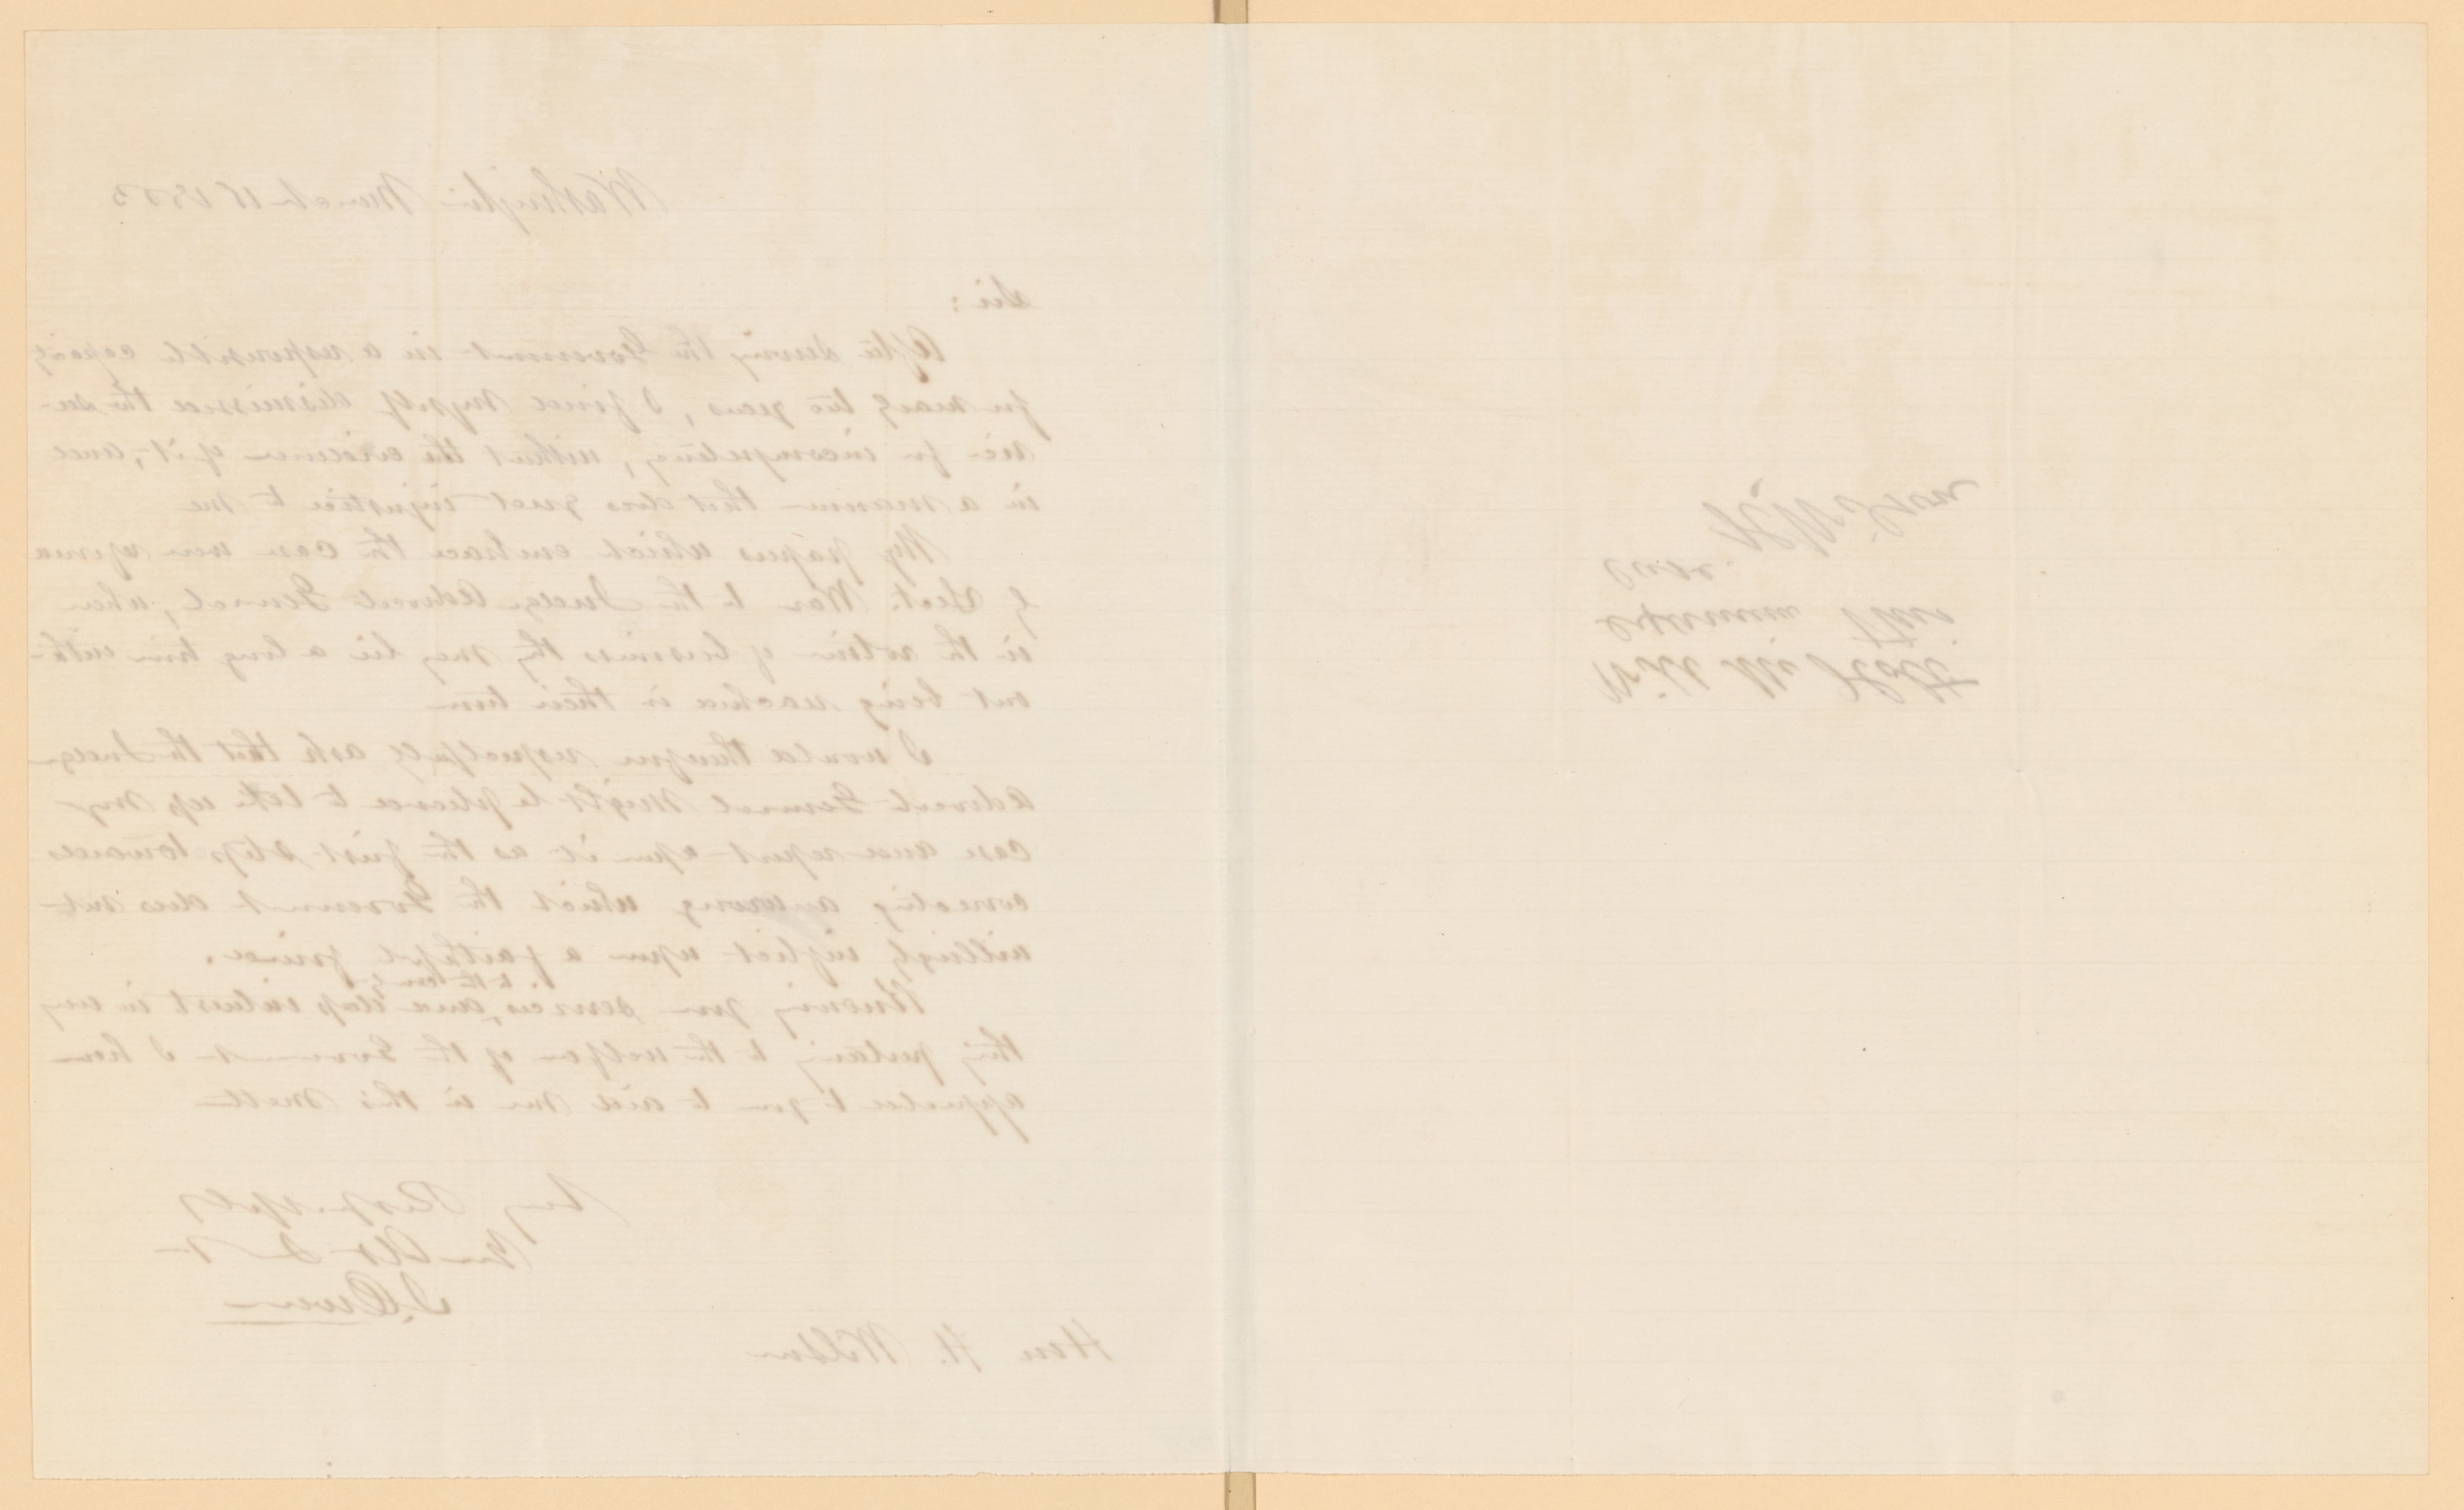 Washington March 18 1863
Sir:
After serving the Government in a responsible capacity
for nearly two years, I find myself dismissed the ser-
vice for incompetency, without the evidence of it, and
in a manner that does great injustice to me
My papers which embrace the case were referred
by Sect. War to the Judge Advocate General, when
in the routine of business they may lie a long time with-
out being reached in their turn
I would therefore respectfully ask that the Judge
Advocate General might be pleased to take up my
case and report upon it as the first step towards
correcting a wrong which the Government does not
willingly inflict upon a faithful friend.
Knowing your services to the country and deep interest in any
thing pertaining to the welfare of the Government I have
appealed to you to aid me in this matter
Very Respectfully
Your Obt
Owen
Hon H. Wilson
Will Mr Holt
examine this
case. H. Wilson